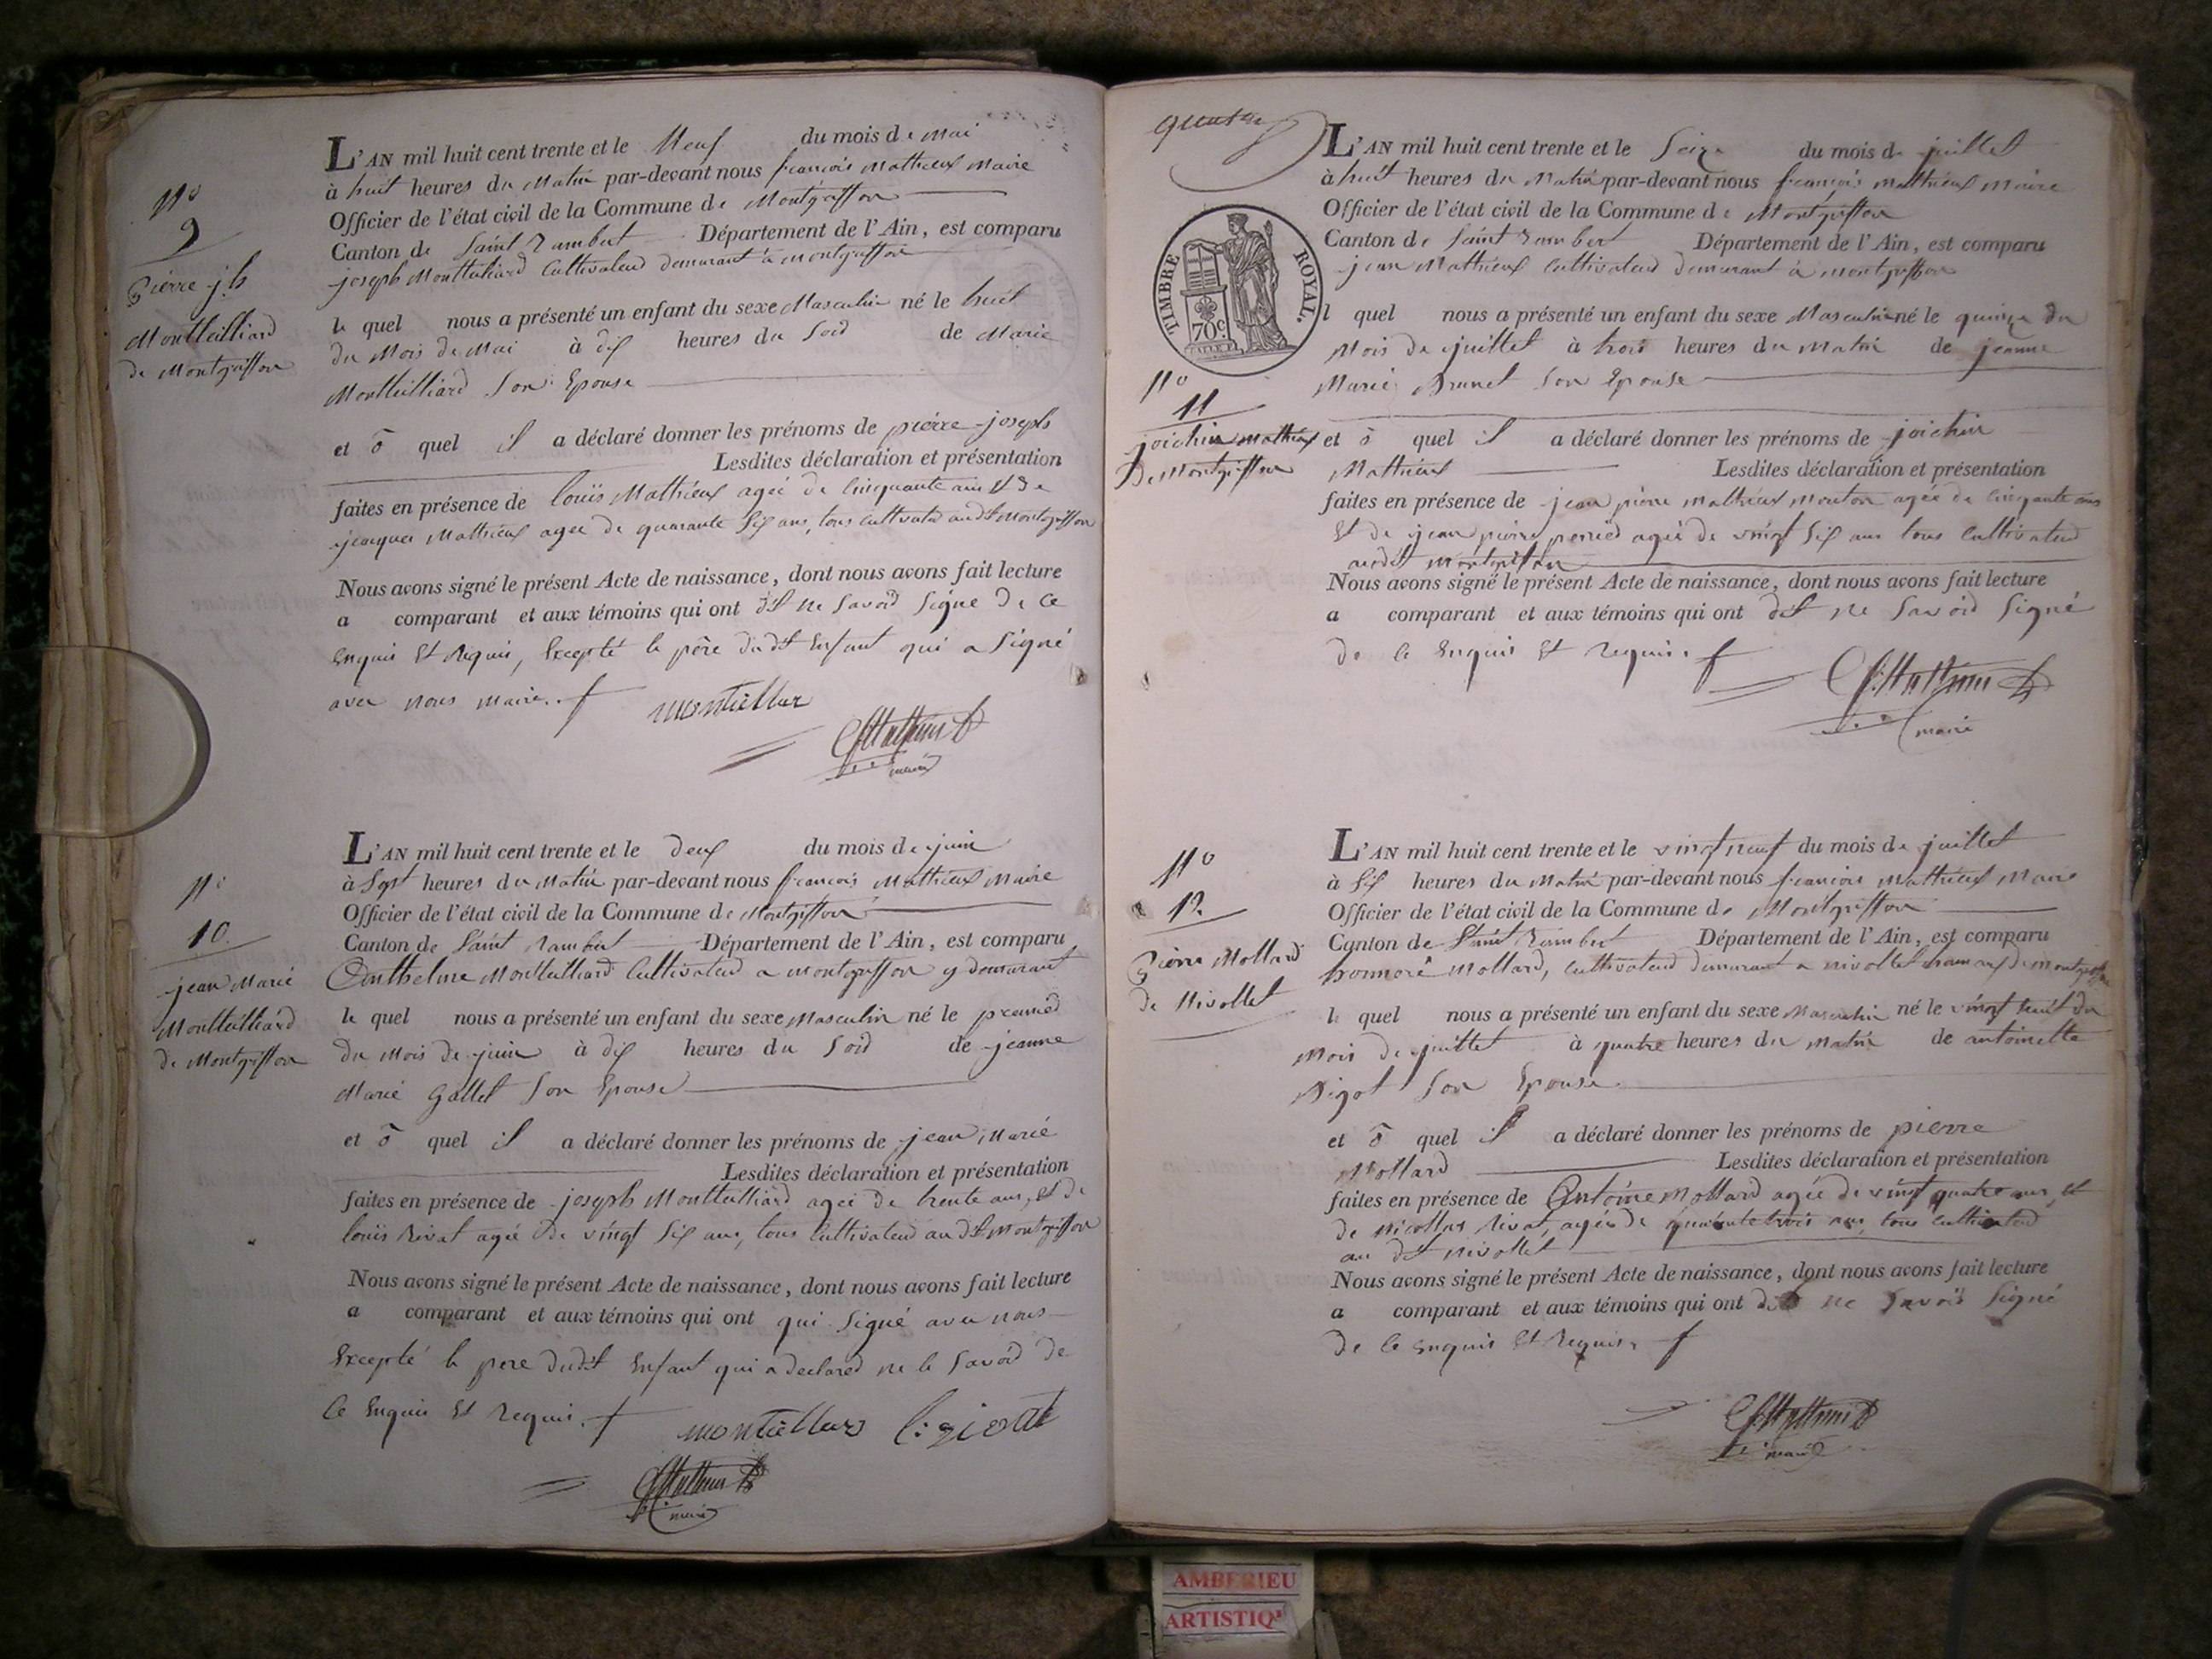 N°
9
Pierre jh
Montteilliard
de Montgriffon
L'AN mil huit cent trente et le Neuf du mois de Mai
à huit heures du Matin par-devant nous françois Mathieux Maire
Officier de l'état civil de la Commune de Montgriffon
Canton de Saint Rambert Département de l'Ain, est comparu
joseph Montteilliard Cultivateur demeurant à Montgriffon
le quel nous a présenté un enfant du sexe Masculin né le huit
du Mois de Mai à dix heures du Soir de Marie
Montteilliard Son Epouse
et o quel il a déclaré donner les prénoms de pierre joseph
Lesdites déclaration et présentation
faites en présence de louis Mathieux agée de Cinquante ans et de
jacques Mathieux agee de quarante Six ans, tous Cultivateur audit Montgriffon
Nous avons signé le présent Acte de naissance, dont nous avons fait lecture
a comparant et aux témoins qui ont dit ne Savoir Signe De Ce
Enquis Et Requis, Excepté le père dudit Enfant qui a Signé
avec nous Maire.
montiellar
f. Mathieux
maire
N°
10
jean Marie
Montteilliard
de Montgriffon
L'AN mil huit cent trente et le Deux du mois de juin
à Sept heures du Matin par-devant nous françois Mathieux Maire
Officier de l'état civil de la Commune de Montgriffon
Canton de Saint Rambert Département de l'Ain, est comparu
Anthelme Montteilliard Cultivateur a Montgriffon y demeurant
le quel nous a présenté un enfant du sexe Masculin né le premier
du Mois de juin à dix heures du Soir de jeanne
Marie Gallet Son Epouse
et o quel il a déclaré donner les prénoms de jean Marie
Lesdites déclaration et présentation
faites en présence de joseph Montteilliard agée de trente ans, et de
louis Rivat agée de vingt Six ans, tous Cultivateur audit Montgriffon
Nous avons signé le présent Acte de naissance, dont nous avons fait lecture
a comparant et aux témoins qui ont qui Signé avec nous
Excepté le pere dudit Enfant qui a Declared ne le Savoir de
Ce Enquis Et Requis.
montiellard
f. Mathieux
maire
TIMBRE ROYAL.
70c.
L'AN mil huit cent trente et le Seize du mois de juillet
à huit heures du Matin par-devant nous françois Mathieux Maire
Officier de l'état civil de la Commune de Montgriffon
Canton de Saint Rambert Département de l'Ain, est comparu
jean Mathieux Cultivateur Demeurant à Montgriffon
l quel nous a présenté un enfant du sexe Masculin né le quinze du
Mois de juillet à trois heures du Matin de jeanne
Marie Brunet Son Epouse
N°
11
joichin Mathieux
De Montgriffon
et o quel il a déclaré donner les prénoms de joichin
Mathieux Lesdites déclaration et présentation
faites en présence de jean pierre Mathieux Mouton agée de Cinquante ans
Et de jean pierre perrier agée de vingt Six ans tous Cultivateur
audit Montgriffon
Nous avons signé le présent Acte de naissance, dont nous avons fait lecture
a comparant et aux témoins qui ont dit ne Savoir Signé
de Ce Enquis Et Requis.
f. Mathieux
maire
N°
12
Pierre Mollard
de Nivollet
L'AN mil huit cent trente et le vingt neuf du mois de juillet
à Six heures du Matin par-devant nous françois Mathieux Maire
Officier de l'état civil de la Commune de Montgriffon
Canton de Saint Rambert Département de l'Ain, est comparu
honnoré Mollard, Cultivateur demeurant a nivollet hameau de Montgriffon
le quel nous a présenté un enfant du sexe Masculin né le vingt huit du
Mois de juillet à quatre heures du Matin de antoinette
Bigot Son Epouse
et o quel il a déclaré donner les prénoms de pierre
Mollard Lesdites déclaration et présentation
faites en présence de Antoine Mollard agée de vingt quatre ans, et
de nicollas Rivat, agée de quarante trois ans, tous Cultivateur
au dit nivollet
Nous avons signé le présent Acte de naissance, dont nous avons fait lecture
a comparant et aux témoins qui ont dit ne Savoir Signé
De Ce Enquis Et Requis.
f. Mathieux
maire
AMBERIEU
ARTISTIQ